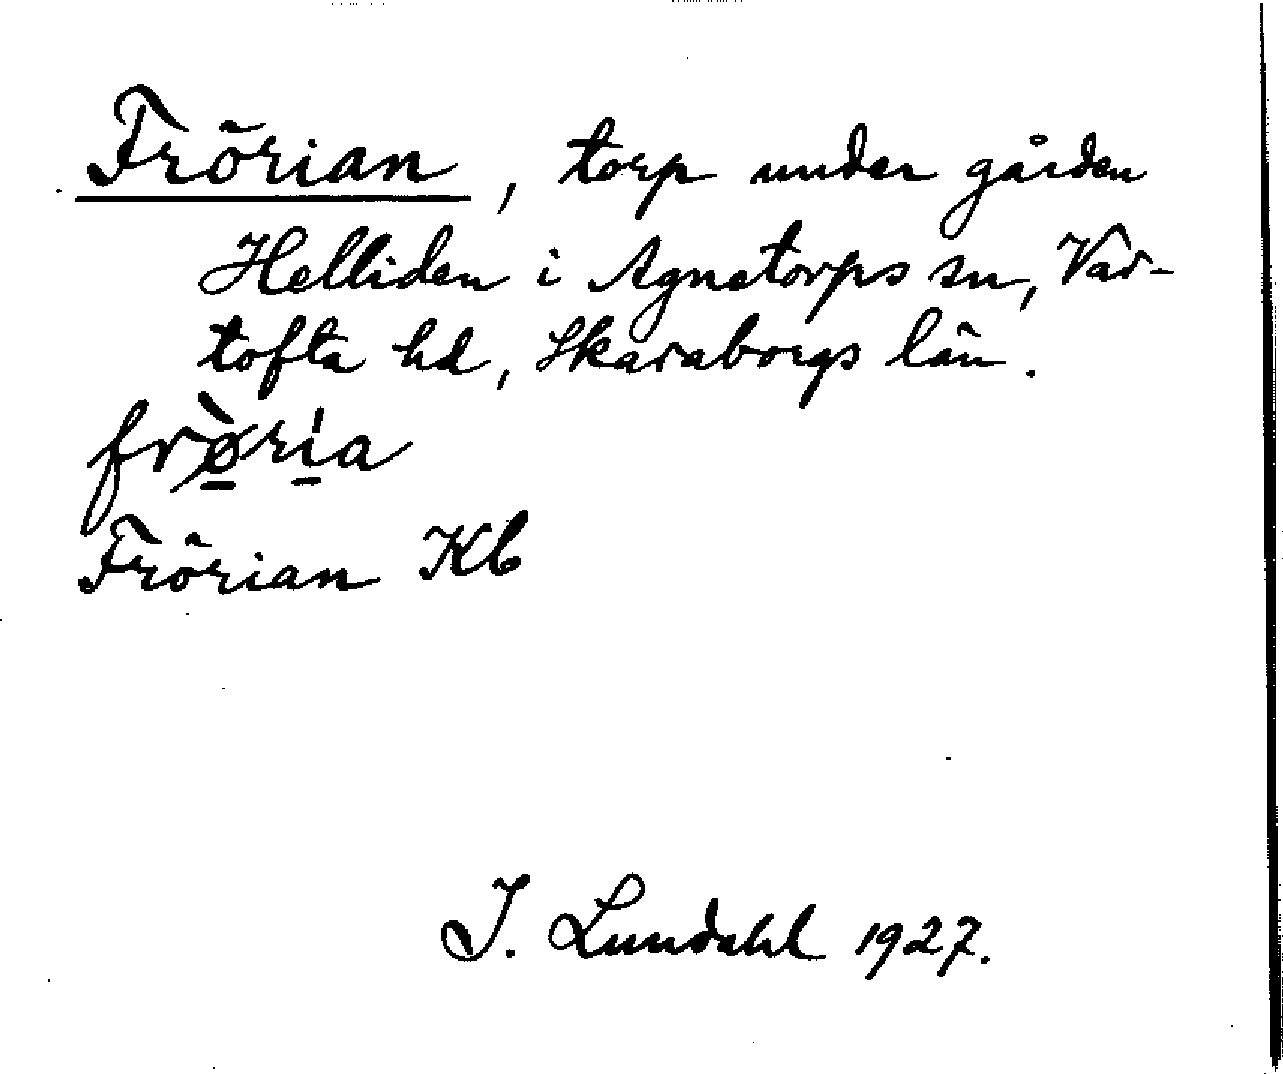 Frörian, torp under gården
Helliden i Agnetorps sn, Var-
tofta hd, Skaraborgs län.
frø̱̀ri̱̍a
Frörian Kb
I. Lundahl 1927.